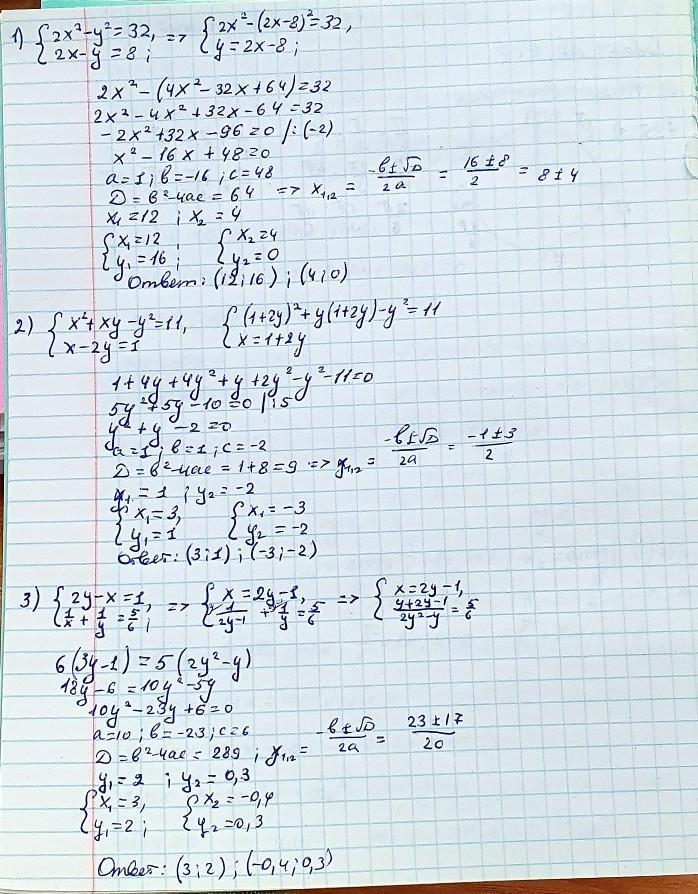 1) { 2x² - y² = 32, => { 2x² - (2x-8)² = 32,
2x - y = 8 ; y = 2x - 8 ;
2x² - (4x² - 32x + 64) = 32
2x² - 4x² + 32x - 64 = 32
-2x² + 32x - 96 = 0 /:(-2)
x² - 16x + 48 = 0
a = 1 ; в = -16 ; c = 48
D = в² - 4ac = 64 => x₁,₂ = (-в ± √D)/2a = (16 ± 8)/2 = 8 ± 4
x₁ = 12 ; x₂ = 4
{ x₁ = 12 , { x₂ = 4
y₁ = 16 ; y₂ = 0
Ответ: (12;16) ; (4;0)
2) { x² + xy - y² = 11, { (1+2y)² + y(1+2y) - y² = 11
x - 2y = 1 x = 1 + 2y
1 + 4y + 4y² + y + 2y² - y² - 11 = 0
5y² + 5y - 10 = 0 | :5
y² + y - 2 = 0
a = 1 ; в = 1 ; c = -2
D = в² - 4ac = 1 + 8 = 9 => y₁,₂ = (-в ± √D)/2a = (-1 ± 3)/2
y₁ = 1 ; y₂ = -2
{ x₁ = 3, { x₁ = -3
y₁ = 1 y₂ = -2
Ответ: (3;1) ; (-3;-2)
3) { 2y - x = 1, => { x = 2y - 1, => { x = 2y - 1,
1/x + 1/y = 5/6 ; 1/(2y-1) + 1/y = 5/6 (y+2y-1)/(2y²-y) = 5/6
6(3y-1) = 5(2y²-y)
18y - 6 = 10y² - 5y
10y² - 23y + 6 = 0
a = 10 ; в = -23 ; c = 6
D = в² - 4ac = 289 ; y₁,₂ = (-в ± √D)/2a = (23 ± 17)/20
y₁ = 2 ; y₂ = 0,3
{ x₁ = 3, { x₂ = -0,4
y₁ = 2 ; y₂ = 0,3
Ответ: (3;2) ; (-0,4;0,3)